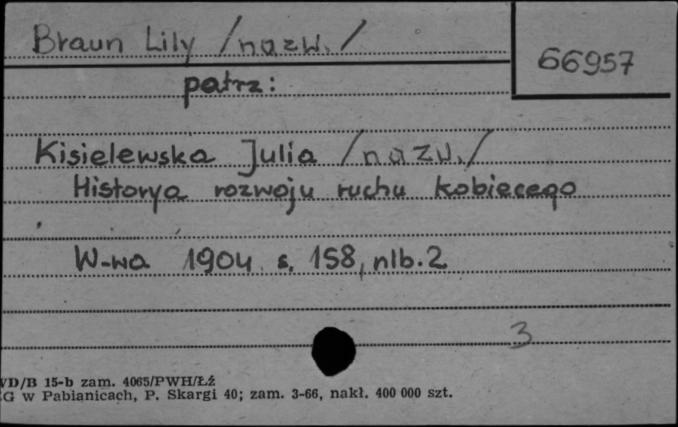 Braun Lily /nazw./
66957
patrz:
Kisielewska Julia /nazw./
Historya rozwoju ruchu kobiecego
W-wa 1904 s. 158, nlb. 2
3
WD/B 15-b zam. 4065/PWH/Łź
G w Pabianicach, P. Skargi 40; zam. 3-66, nakł. 400 000 szt.